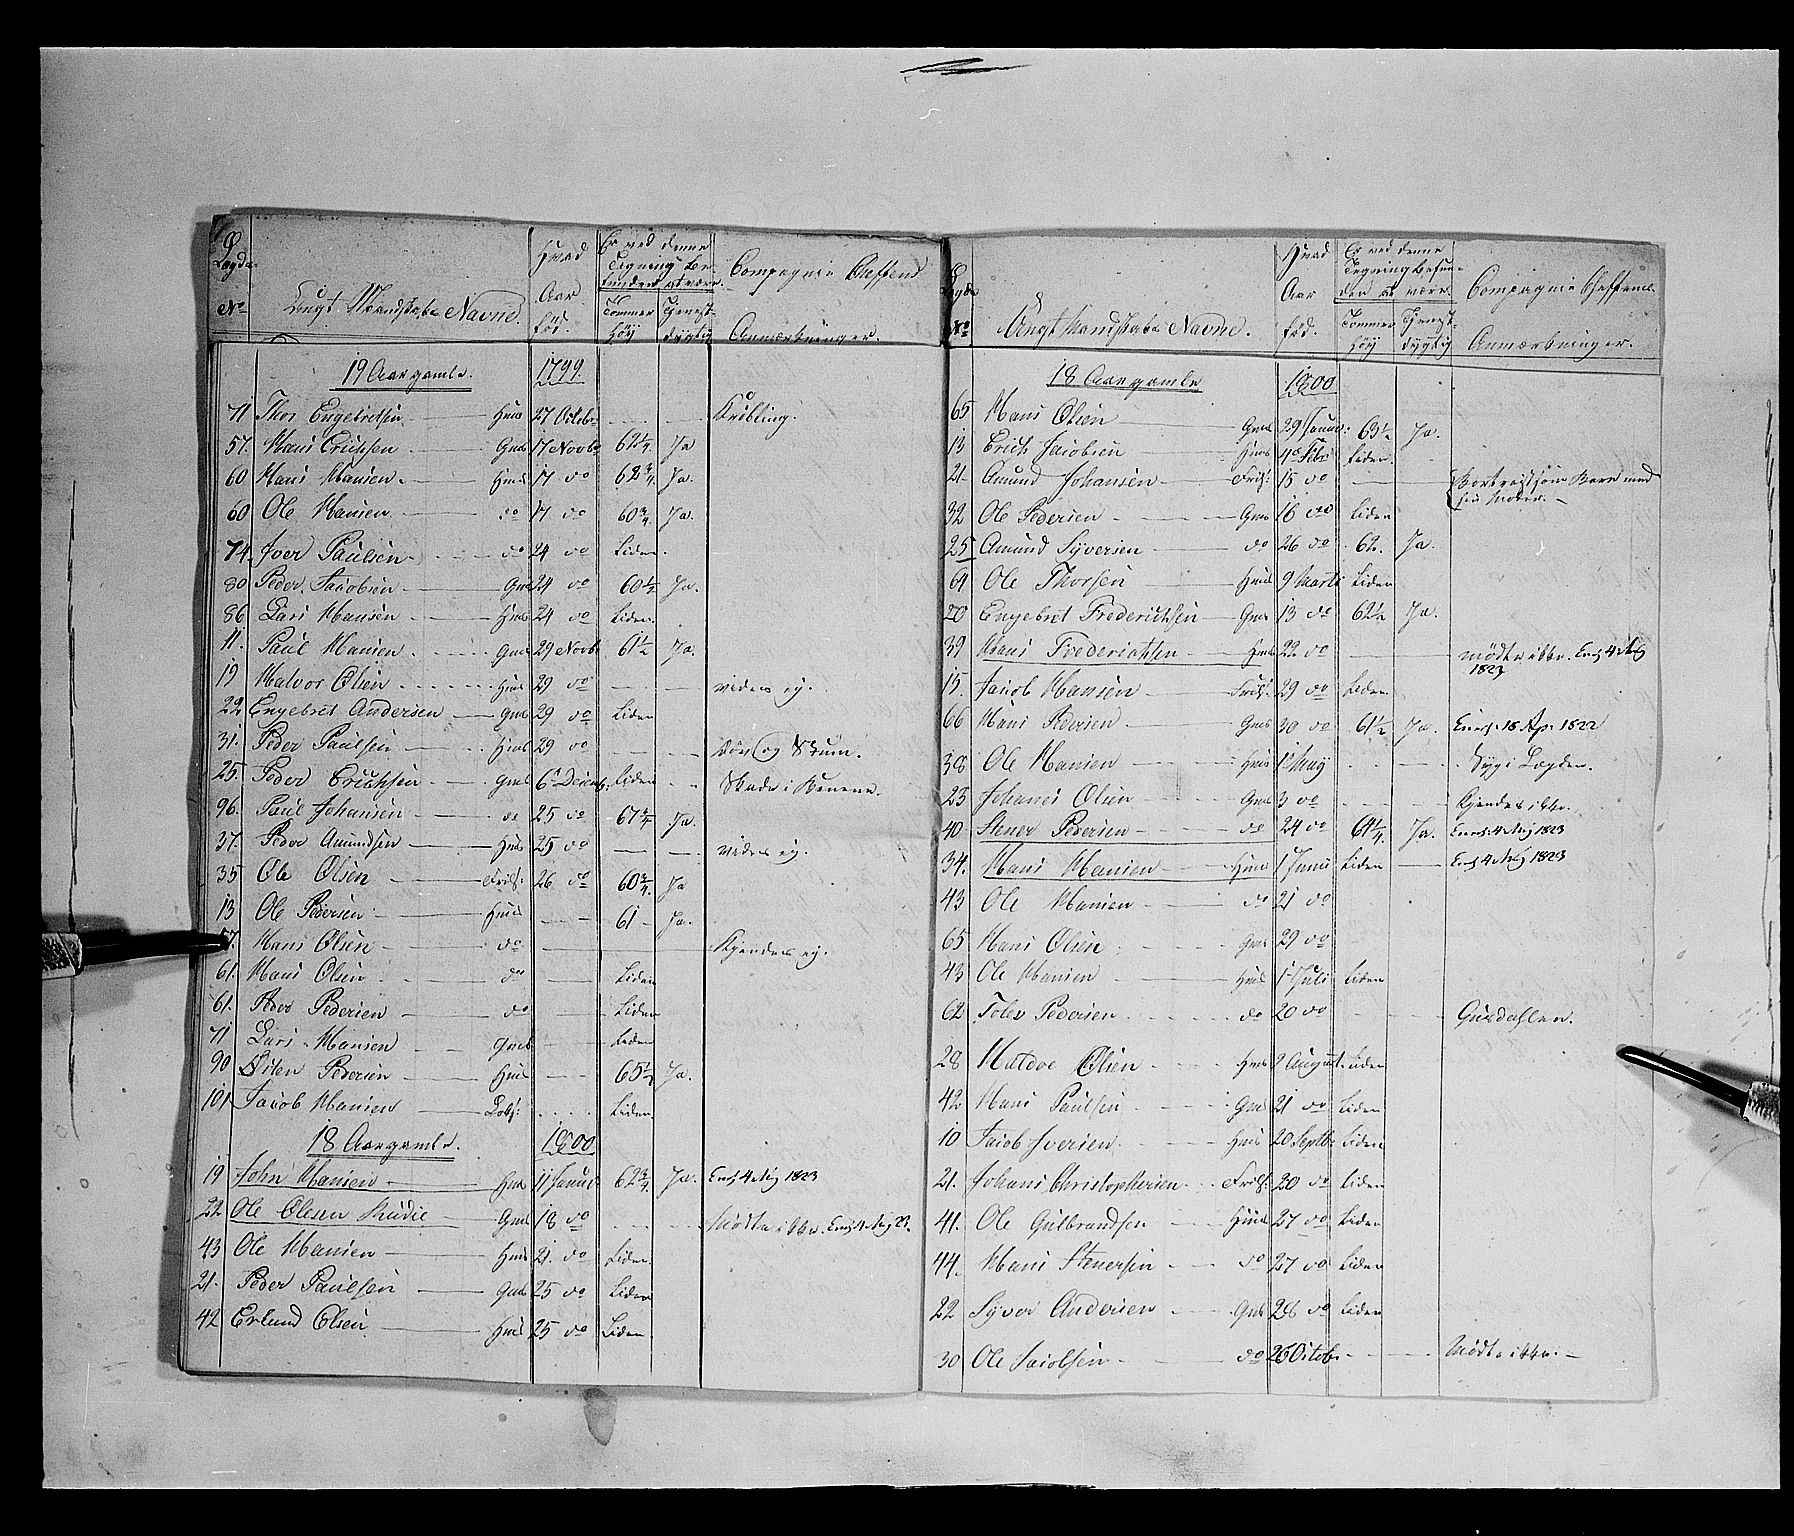 Lægds N° | Ungt Mandskabs Navne. | Hvad Aar fød. | Er ved denne Tegning befunden at være Tommer høy | Tjenstdygtig | Compagnie Cheffens Anmærkninger.
19 Aargamle. 1799.
71 Thor Engebretsen — Huus 27 Octobr - - -
57. Hans Erichsen — Gms 17 Novbr 62 1/4 Ja
60 Hans Hansen. — Huus 17 do 62 3/4 Ja.
60 Ole Hansen — do 17 do 60 3/4 Ja.
74. Iver Paulsen — do 24 do Liden
80 Peder Jacobsen — Gms 24 do 60 1/2 Ja.
86 Lars Hansen — Huus 24 do Liden
11. Paul Hansen — Gms 29 Novbr 61 1/2 Ja.
19 Halvor Olsen — Huus 29 do — — vides ey.
22 Engebret Andersen — Gms 29 do Liden
31. Peder Paulsen — Huus 29 do — — Døv og Stum.
25. Peder Erichsen — Gms 6 Decemb. Liden - - Skade i Benene.
96. Paul Johansen — do 25 do Ja.
37. Peder Amundsen — Huus 25 do — — vides ey.
35 Ole Olsen — Frils: 26 do 60 3/4 Ja
13 Ole Pedersen — Huus - - 61 - Ja.
57. Hans Olsen — do — Kjendes ey.
61. Hans Olsen — do — Liden
61. Peder Pedersen — do — Liden
71 Lars Hansen — Gms — Liden
90 Osten Pedersen — Huus - - 65 1/2 Ja.
101 Jacob Hansen — - - - Liden
18 Aargamle. 1800.
19 John Hansen — Huus 11 Januar 62 3/4 Ja.
22 Ole Olsen — Gms 18 do - - - Mødte ikke.
43 Ole Hansen — Huus 21. do Liden
21. Peder Paulsen — Gms 25 do Liden
42 Erlund Olsen — Huus 25 do Liden.
Lægds N° | Ungt Mandskabs Navne. | Hvad Aar fød. | Er ved denne Tegning befunden at være Tommer høy | Tjenstdygtig | Compagnie Cheffens Anmærkninger.
18 Aargamle 1800
65 Hans Olsen — Gms 29 Januar: 63 1/2 Ja.
13 Erich Jacobsen — Huus 4 Febr Liden
21 Amund Johansen — Frils: 15 do — Bortreist som Barn med sin Moder. —
32 Ole Pedersen — Gms 16 do Liden
25 Amund Syversen — do 26 do 62. Ja.
69 Ole Thorsen — Huus 9 Marts Liden
20 Engebret Frederichsen — Gms 13 do 62 1/2 Ja.
39 Hans Frederichsen — Huus 22 do — — mødte ikke.
1823
15. Jacob Hansen — Frils: 29 do Liden
66 Hans Pedersen — Gms 30 do 61 1/2 Ja. 18 Ap. 1822
38 Ole Hansen — Huus 1 May — — Syg i Lægden.
23 Johanes Olsen — Gms 3 do - - - Kjendes ikke.
40 Stener Pedersen — do 24 do 61 1/4 Ja. 1823
34. Hans Hansen — Huus 1 Juni Liden — 1823
43 Ole Hansen — do 21 do
65 Hans Olsen — Gms 29 do
43 Ole Hansen — Huus 1 Juli Liden
62 Tolev Pedersen — do 20 do
28 Olsen — Huus 2 August Liden
42 Hans Paulsen — Gms 21 do Liden
10 Jacob Iversen — Huus 20 Septbr Liden
21. Johans Christophersen — Frils: 20 do Liden
41. Ole Gulbrandsen — Huus 27 do Liden
44. Hans Stenersen — do 27 do Liden
22 Syver Andersen — Gms 28 do Liden
30 Ole Jacobsen — do 26 Octob. — — Mødte ikke. —